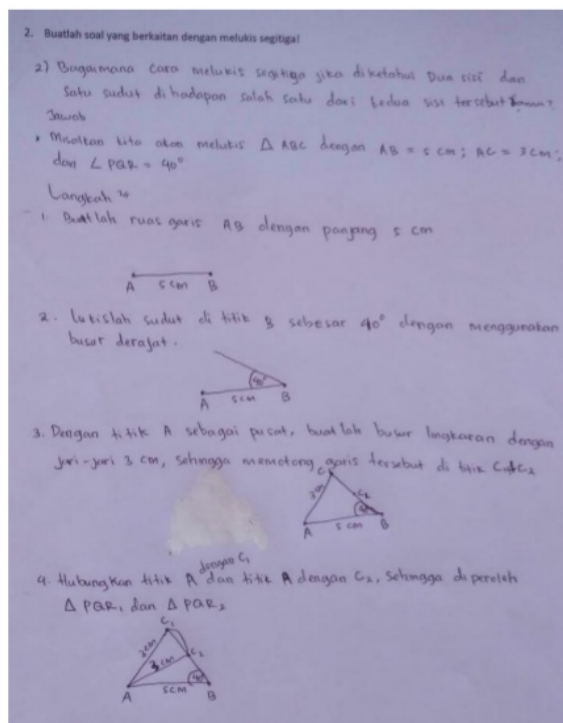 2. Buatlah soal yang berkaitan dengan melukis segitiga!
2) Bagaimana cara melukis segitiga jika diketahui Dua sisi dan
satu sudut dihadapan salah satu dari kedua sisi tersebut
Jawab
• Misalkan kita akan melukis △ ABC dengan AB = 5 cm; AC = 3 cm;
dan ∠ PQR = 40°
Langkah
1. Buatlah ruas garis AB dengan panjang 5 cm
A 5 cm B
2. Lukislah sudut di titik B sebesar 40° dengan menggunakan
busur derajat.
40°
A 5 cm B
3. Dengan titik A sebagai pusat, buatlah busur lingkaran dengan
jari-jari 3 cm, sehingga memotong garis tersebut di titik C1 & C2
C1
3 cm C2
40°
A 5 cm B
dengan C1
4. Hubungkan titik A dan titik A dengan C2, sehingga diperoleh
△ PQR1 dan △ PQR2
C1
3 cm 3 cm C2
40°
A 5 cm B